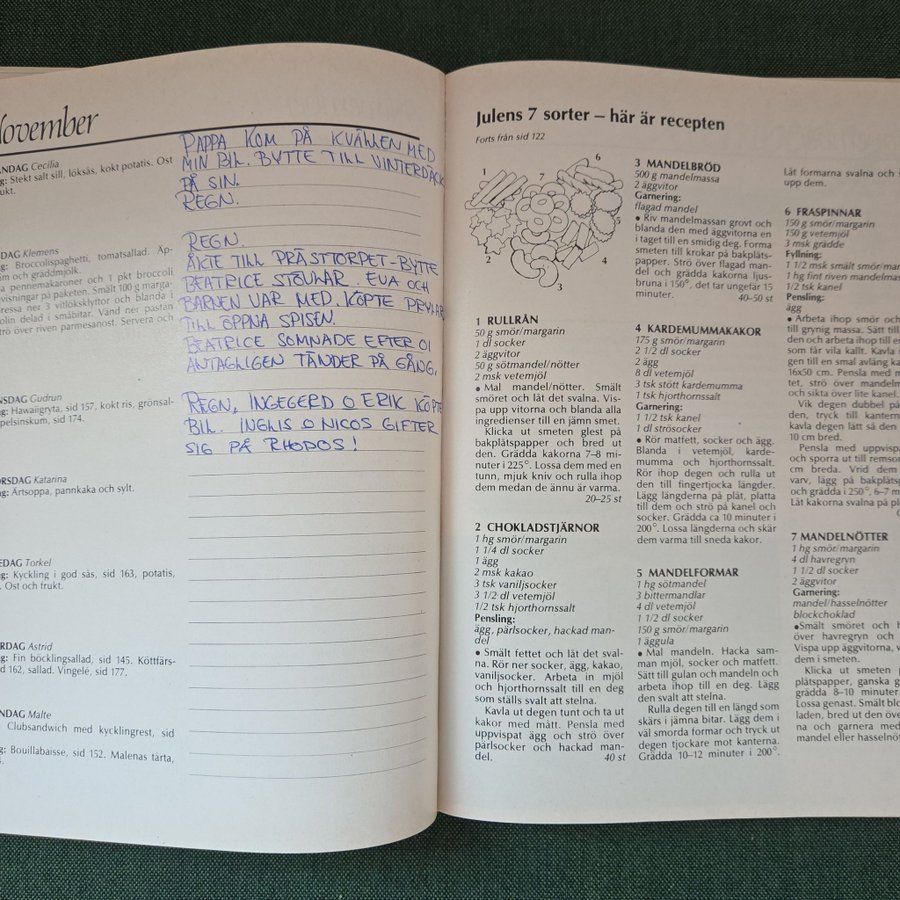 November
NDAG Cecilia
g: Stekt salt sill, löksås, kokt potatis. Ost
rukt.
DAG Klemens
g: Broccolispaghetti, tomatsallad. Äp-
m och gräddmjölk.
a pennemakaroner och 1 pkt broccoli
visningar på paketen. Smält 100 g marga-
ressa ner 3 vitlöksklyftor och blanda i
olin delad i småbitar. Vänd ner pastan
trö över riven parmesanost. Servera och
NSDAG Gudrun
g: Hawaiigryta, sid 157, kokt ris, grönsal-
pelsinskum, sid 174.
ORSDAG Katarina
g: Ärtsoppa, pannkaka och sylt.
EDAG Torkel
g: Kyckling i god sås, sid 163, potatis,
. Ost och frukt.
RDAG Astrid
g: Fin böcklingsallad, sid 145. Köttfärs-
d 162, sallad. Vingelé, sid 177.
NDAG Malte
Clubsandwich med kycklingrest, sid
g: Bouillabaisse, sid 152. Malenas tårta,
PAPPA KOM PÅ KVÄLLEN MED
MIN BIL. BYTTE TILL VINTERDÄCK
PÅ SIN.
REGN.
REGN.
ÅKTE TILL PRÄSTTORPET-BYTTE
BEATRICE STÖVLAR. EVA OCH
BARNEN VAR MED. KÖPTE PRYLAR
TILL ÖPPNA SPISEN.
BEATRICE SOMNADE EFTER 01
ANTAGLIGEN TÄNDER PÅ GÅNG.
REGN, INGEGERD O ERIK KÖPTE
BIL. INGHIS O NICOS GIFTER
SIG PÅ RHODOS!
Julens 7 sorter – här är recepten
Forts från sid 122
1
2
3
4
5
6
7
1 RULLRÅN
50 g smör/margarin
1 dl socker
2 äggvitor
50 g sötmandel/nötter
2 msk vetemjöl
• Mal mandel/nötter. Smält
smöret och låt det svalna. Vis-
pa upp vitorna och blanda alla
ingredienser till en jämn smet.
Klicka ut smeten glest på
bakplåtspapper och bred ut
den. Grädda kakorna 7–8 mi-
nuter i 225°. Lossa dem med en
tunn, mjuk kniv och rulla ihop
dem medan de ännu är varma.
20–25 st
2 CHOKLADSTJÄRNOR
1 hg smör/margarin
1 1/4 dl socker
1 ägg
2 msk kakao
3 tsk vaniljsocker
3 1/2 dl vetemjöl
1/2 tsk hjorthornssalt
Pensling:
ägg, pärlsocker, hackad man-
del
• Smält fettet och låt det sval-
na. Rör ner socker, ägg, kakao,
vaniljsocker. Arbeta in mjöl
och hjorthornssalt till en deg
som ställs svalt att stelna.
Kavla ut degen tunt och ta ut
kakor med mått. Pensla med
uppvispat ägg och strö över
pärlsocker och hackad man-
del.
40 st
3 MANDELBRÖD
500 g mandelmassa
2 äggvitor
Garnering:
flagad mandel
• Riv mandelmassan grovt och
blanda den med äggvitorna en
i taget till en smidig deg. Forma
smeten till krokar på bakplåts-
papper. Strö över flagad man-
del och grädda kakorna ljus-
bruna i 150°, det tar ungefär 15
minuter.
40–50 st
4 KARDEMUMMAKAKOR
175 g smör/margarin
2 1/2 dl socker
2 ägg
8 dl vetemjöl
3 tsk stött kardemumma
1 tsk hjorthornssalt
Garnering:
1 1/2 tsk kanel
1 dl strösocker
• Rör matfett, socker och ägg.
Blanda i vetemjöl, karde-
mumma och hjorthornssalt.
Rör ihop degen och rulla ut
den till fingertjocka längder.
Lägg längderna på plåt, platta
till dem och strö på kanel och
socker. Grädda ca 10 minuter i
200°. Lossa längderna och skär
dem varma till sneda kakor.
5 MANDELFORMAR
1 hg sötmandel
3 bittermandlar
4 dl vetemjöl
1 1/2 dl socker
150 g smör/margarin
1 äggula
• Mal mandeln. Hacka sam-
man mjöl, socker och matfett.
Sätt till gulan och mandeln och
arbeta ihop till en deg. Lägg
den svalt att stelna.
Rulla degen till en längd som
skärs i jämna bitar. Lägg dem i
väl smorda formar och tryck ut
degen tjockare mot kanterna.
Grädda 10–12 minuter i 200°.
Låt formarna svalna och s
upp dem.
6 FRASPINNAR
150 g smör/margarin
150 g vetemjöl
3 msk grädde
Fyllning:
1 1/2 msk smält smör/mar
1 hg fint riven mandelmas
1/2 tsk kanel
Pensling:
ägg
• Arbeta ihop smör och
till grynig massa. Sätt till
den och arbeta ihop till en
som får vila kallt. Kavla
gen till en smal avlång ka
16x50 cm. Pensla med m
tet, strö över mandelm
och sikta över lite kanel.
Vik degen dubbel på
den, tryck till kanterna
kavla degen lätt så den
10 cm bred.
Pensla med uppvispa
och sporra ut till remsor
cm breda. Vrid dem
varv, lägg på bakplåtspa
och grädda i 250°, 6–7 m
Låt kakorna svalna på pl
7 MANDELNÖTTER
1 hg smör/margarin
4 dl havregryn
1 1/2 dl socker
2 äggvitor
Garnering:
mandel/hasselnötter
blockchoklad
•Smält smöret och h
över havregryn och
Vispa upp äggvitorna, v
dem i smeten.
Klicka ut smeten
plåtspapper, ganska g
grädda 8–10 minuter
Lossa genast. Smält blo
laden, bred ut den över
na och garnera med
mandel eller hasselnöt